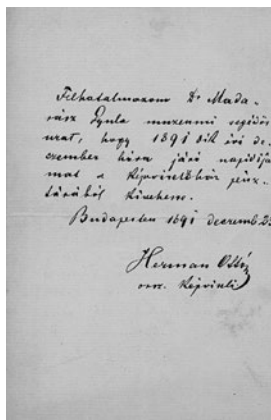 Felhatalmazom Dr Mada-
rász Gyula muzeumi segédőr
urat, hogy 1891 dik évi de-
czember hóra járó napidíja-
mat a képviselőház pénz-
tárából kivehesse.
Budapesten 1891 decemb. 23
Herman Ottó
orsz. képviselő